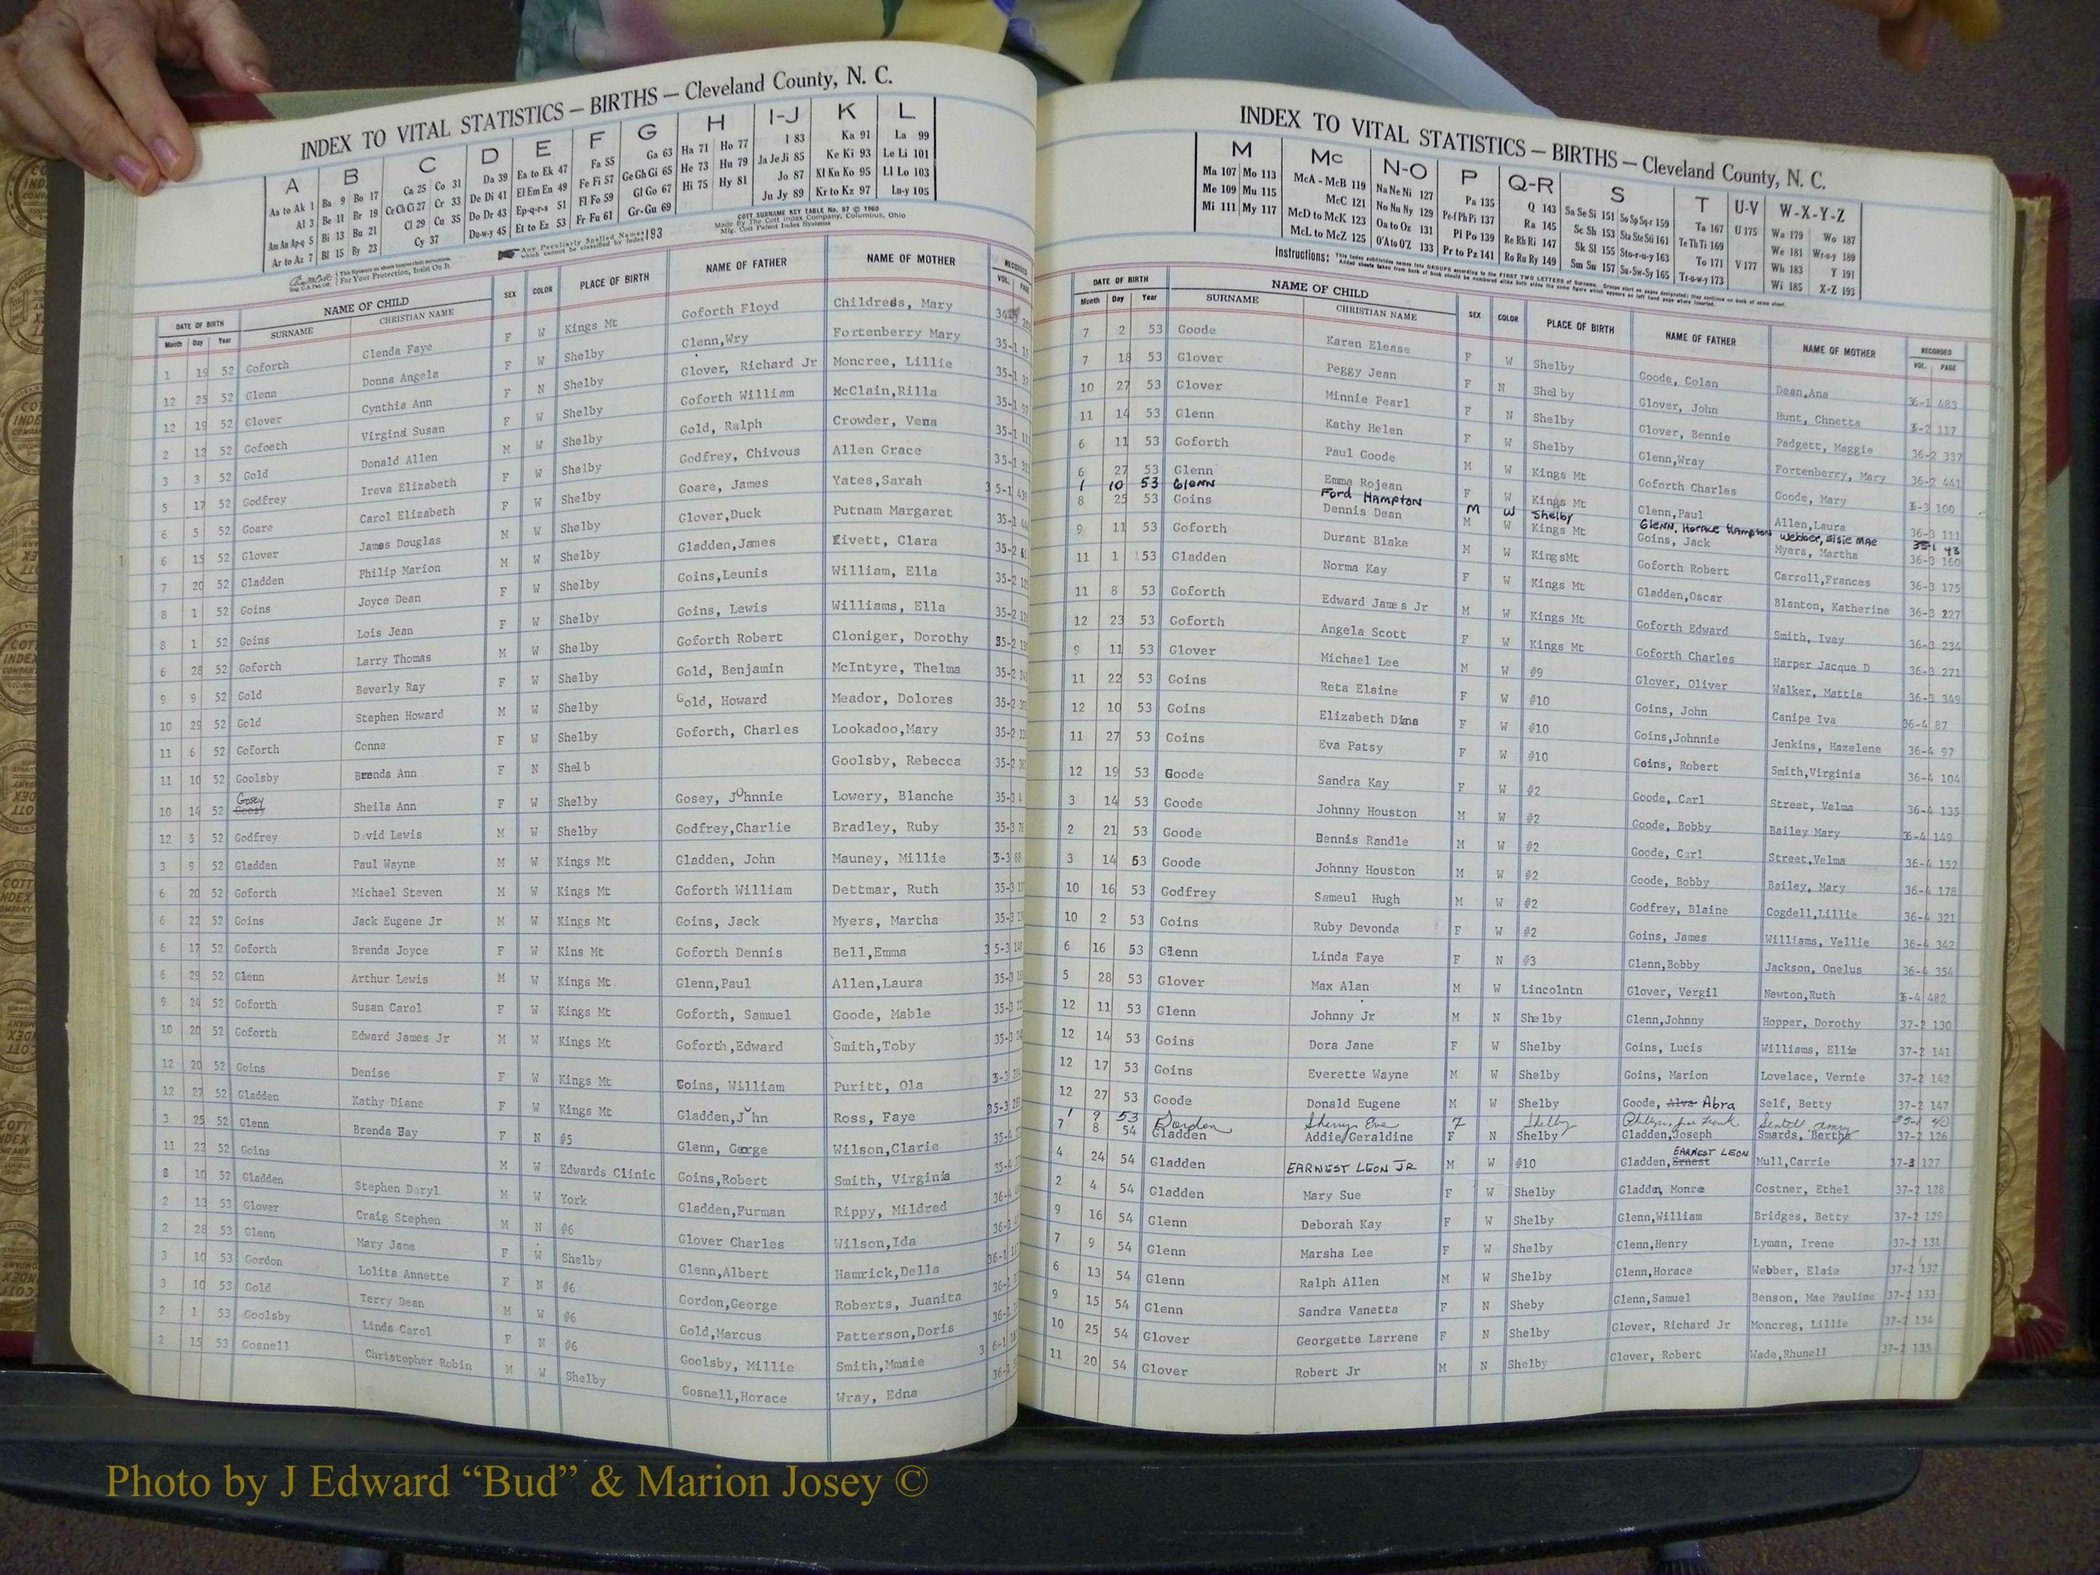 INDEX TO VITAL STATISTICS — BIRTHS — Cleveland County, N. C.
A B C D E F G H I-J K L
Aa to Ak 1 Ba 9 Bo 17 Ca 25 Co 31 Da 39 Ea to Ek 47 Fa 55 Ga 63 Ha 71 Ho 77 I 83 Ka 91 La 99
Al 3 Be 11 Br 19 Ce Ch Ci 27 Cr 33 De Di 41 El Em En 49 Fe Fi 57 Ge Gh Gi 65 He 73 Hu 79 Ja Je Ji 85 Ke Ki 93 Le Li 101
Am An Ap-q 5 Bi 13 Bu 21 Cl 29 Cu 35 Do Dr 43 Ep-q-r-s 51 Fl Fo 59 Gl Go 67 Hi 75 Hy 81 Jo 87 Kl Kn Ko 95 Ll Lo 103
Ar to Az 7 Bl 15 By 23 Cy 37 Du-w-y 45 Et to Ez 53 Fr Fu 61 Gr-Gu 69 Ju Jy 89 Kr to Kz 97 Lu-y 105
For Your Protection, Insist On It.
Any Peculiarly Spelled Names which cannot be classified by Index 193
COTT SURNAME KEY TABLE No. 97 © 1960
Made By The Cott Index Company, Columbus, Ohio
Mfg. Cott Patent Index Systems
DATE OF BIRTH NAME OF CHILD SEX COLOR PLACE OF BIRTH NAME OF FATHER NAME OF MOTHER RECORDED
Month Day Year SURNAME CHRISTIAN NAME VOL. PAGE
1 19 52 Goforth Glenda Faye F W Kings Mt Goforth Floyd Childreds, Mary
12 25 52 Glenn Donna Angela F W Shelby Glenn,Wry Fortenberry Mary 35-1
12 19 52 Glover Cynthia Ann F N Shelby Glover, Richard Jr Moncree, Lillie 35-1
2 12 52 Gofoeth Virgina Susan F W Shelby Goforth William McClain,Rilla 35-1
3 3 52 Gold Donald Allen M W Shelby Gold, Ralph Crowder, Vena 35-1
5 17 52 Godfrey Ireva Elizabeth F W Shelby Godfrey, Chivous Allen Grace 35-1
6 5 52 Goare Carol Elizabeth F W Shelby Goare, James Yates,Sarah 35-1
6 15 52 Glover James Douglas M W Shelby Glover,Duck Putnam Margaret 35-1
7 20 52 Gladden Philip Marion M W Shelby Gladden,James Kivett, Clara 35-2
8 1 52 Goins Joyce Dean F W Shelby Goins,Leunis William, Ella 35-2
8 1 52 Goins Lois Jean F W Shelby Goins, Lewis Williams, Ella 35-2
6 28 52 Goforth Larry Thomas M W Shelby Goforth Robert Cloniger, Dorothy 35-2
9 9 52 Gold Beverly Ray F W Shelby Gold, Benjamin McIntyre, Thelma 35-2
10 29 52 Gold Stephen Howard M W Shelby Gold, Howard Meador, Dolores 35-2
11 6 52 Goforth Conne F W Shelby Goforth, Charles Lookadoo,Mary 35-2
11 10 52 Goolsby Brenda Ann F N Shelb Goolsby, Rebecca 35-2
10 14 52 Gosey Sheila Ann F W Shelby Gosey, Johnnie Lowery, Blanche 35-3
12 5 52 Godfrey David Lewis M W Shelby Godfrey,Charlie Bradley, Ruby 35-3
3 9 52 Gladden Paul Wayne M W Kings Mt Gladden, John Mauney, Millie 3-3
6 20 52 Goforth Michael Steven M W Kings Mt Goforth William Dettmar, Ruth 35-3
6 22 52 Goins Jack Eugene Jr M W Kings Mt Goins, Jack Myers, Martha 35-3
6 17 52 Goforth Brenda Joyce F W Kins Mt Goforth Dennis Bell,Emma 35-3
6 29 52 Glenn Arthur Lewis M W Kings Mt Glenn,Paul Allen,Laura 35-3
9 24 52 Goforth Susan Carol F W Kings Mt Goforth, Samuel Goode, Mable 35-3
10 20 52 Goforth Edward James Jr M W Kings Mt Goforth,Edward Smith,Toby 35-3
12 20 52 Goins Denise F W Kings Mt Goins, William Puritt, Ola 3-3
12 27 52 Gladden Kathy Diane F W Kings Mt Gladden,John Ross, Faye 35-3
3 25 52 Glenn Brenda Bay F N #5 Glenn, George Wilson,Clarie 35-4
11 22 52 Goins M W Edwards Clinic Goins,Robert Smith, Virginia 35-4
8 10 52 Gladden Stephen Daryl M W York Gladden,Furman Rippy, Mildred 36-
2 13 53 Glover Craig Stephen M N #6 Glover Charles Wilson,Ida 36-1
2 28 53 Glenn Mary Jane F W Shelby Glenn,Albert Hamrick,Della 36-1
3 10 53 Gordon Lolita Annette F N #6 Gordon,George Roberts, Juanita 36-1
3 10 53 Gold Terry Dean M W #6 Gold,Marcus Patterson,Doris 36-1
2 1 53 Goolsby Linda Carol F N #6 Goolsby, Millie Smith,Mmaie 36-1
2 15 53 Gosnell Christopher Robin M W Shelby Gosnell,Horace Wray, Edna 36-1
INDEX TO VITAL STATISTICS — BIRTHS — Cleveland County, N. C.
M Mc N-O P Q-R S T U-V W-X-Y-Z
Ma 107 Mo 113 McA - McB 119 Na Ne Ni 127 Pa 135 Q 143 Sa Se Si 151 So Sp Sq-r 159 Ta 167 U 175 Wa 179 Wo 187
Me 109 Mu 115 McC 121 No Nu Ny 129 Pe-f Ph Pi 137 Ra 145 Sc Sh 153 Sta Ste Sti 161 Te Th Ti 169 We 181 Wr-u-y 189
Mi 111 My 117 McD to McK 123 Oa to Oz 131 Pl Po 139 Re Rh Ri 147 Sk Sl 155 Sto-r-u-y 163 To 171 V 177 Wh 183 Y 191
McL to McZ 125 O'A to O'Z 133 Pr to Pz 141 Ro Ru Ry 149 Sm Sn 157 Su-Sw-Sy 165 Tr-u-w-y 173 Wi 185 X-Z 193
Instructions: This Index subdivides names into GROUPS according to the FIRST TWO LETTERS of Surname.
DATE OF BIRTH NAME OF CHILD SEX COLOR PLACE OF BIRTH NAME OF FATHER NAME OF MOTHER RECORDED
Month Day Year SURNAME CHRISTIAN NAME VOL. PAGE
7 2 53 Goode Karen Elease F W Shelby Goode, Colan Dean,Ana 36-1 483
7 18 53 Glover Peggy Jean F N Shelby Glover, John Hunt, Chnetta 3-2 117
10 27 53 Glover Minnie Pearl F N Shelby Glover, Bennie Padgett, Maggie 36-2 337
11 14 53 Glenn Kathy Helen F W Shelby Glenn,Wray Fortenberry, Mary 36-2 441
6 11 53 Goforth Paul Goode M W Kings Mt Goforth Charles Goode, Mary 3-3 100
6 27 53 Glenn Emma Rojean F W Kings Mt Glenn,Paul Allen,Laura 36-3 111
1 10 53 Glenn Ford Hampton M W Shelby Glenn, Horace Hampton Webber, Elsie Mae 35-1 43
8 25 53 Goins Dennis Dean M W Kings Mt Goins, Jack Myers, Martha 36-3 160
9 11 53 Goforth Durant Blake M W KingsMt Goforth Robert Carroll,Frances 36-3 175
11 1 53 Gladden Norma Kay F W Kings Mt Gladden,Oscar Blanton, Katherine 36-3 227
11 8 53 Goforth Edward James Jr M W Kings Mt Goforth Edward Smith, Ivey 36-3 234
12 23 53 Goforth Angela Scott F W Kings Mt Goforth Charles Harper Jacque D 36-3 271
9 11 53 Glover Michael Lee M W #9 Glover, Oliver Walker, Mattie 36-3 349
11 22 53 Goins Reta Elaine F W #10 Goins, John Canipe Iva 36-4 87
12 10 53 Goins Elizabeth Dina F W #10 Goins,Johnnie Jenkins, Hazelene 36-4 97
11 27 53 Goins Eva Patsy F W #10 Goins, Robert Smith,Virginia 36-4 104
12 19 53 Goode Sandra Kay F W #2 Goode, Carl Street, Velma 36-4 135
3 14 53 Goode Johnny Houston M W #2 Goode, Bobby Bailey Mary 36-4 149
2 21 53 Goode Bennis Randle M W #2 Goode, Carl Street,Velma 36-4 152
3 14 53 Goode Johnny Houston M W #2 Goode, Bobby Bailey, Mary 36-4 178
10 16 53 Godfrey Sameul Hugh M W #2 Godfrey, Blaine Cogdell,Lillie 36-4 321
10 2 53 Goins Ruby Devonda F W #2 Goins, James Williams, Vellie 36-4 342
6 16 53 Glenn Linda Faye F N #3 Glenn,Bobby Jackson, Onelus 36-4 354
5 28 53 Glover Max Alan M W Lincolntn Glover, Vergil Newton,Ruth 3-4 482
12 11 53 Glenn Johnny Jr M N Shelby Glenn,Johnny Hopper, Dorothy 37-2 130
12 14 53 Goins Dora Jane F W Shelby Goins, Lucis Williams, Ellie 37-2 141
12 17 53 Goins Everette Wayne M W Shelby Goins, Marion Lovelace, Vernie 37-2 142
12 27 53 Goode Donald Eugene M W Shelby Goode, Alva Abra Self, Betty 37-2 147
1 9 53 Gordon Sherry Eve F Shelby
7 8 54 Gladden Addie Geraldine F N Shelby Gladden,Joseph Smards, Bertha 37-2 126
4 24 54 Gladden EARNEST LEON JR M W #10 Gladden, Ernest EARNEST LEON Mull,Carrie 37-3 127
2 4 54 Gladden Mary Sue F W Shelby Gladden, Monroe Costner, Ethel 37-2 128
9 16 54 Glenn Deborah Kay F W Shelby Glenn,William Bridges, Betty 37-2 129
7 9 54 Glenn Marsha Lee F W Shelby Glenn,Henry Lyman, Irene 37-2 131
6 13 54 Glenn Ralph Allen M W Shelby Glenn,Horace Webber, Elsie 37-2 132
9 15 54 Glenn Sandra Vanetta F N Sheby Glenn,Samuel Benson, Mae Pauline 37-2 133
10 25 54 Glover Georgette Larrene F N Shelby Glover, Richard Jr Moncreg, Lillie 37-2 134
11 20 54 Glover Robert Jr M N Shelby Glover, Robert Wade,Rhunell 37-2 135
Photo by J Edward “Bud” & Marion Josey ©